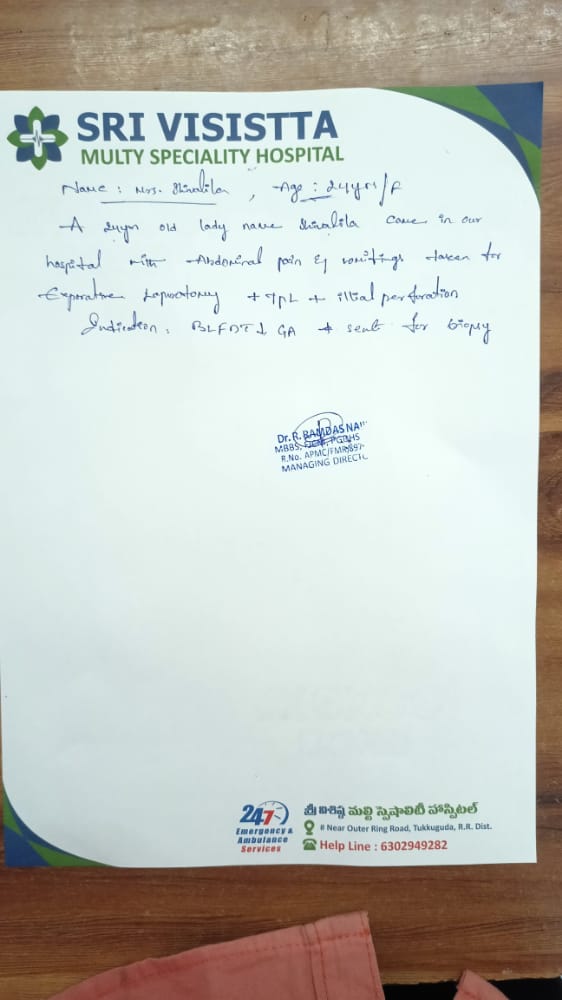 SRI VISISTTA
MULTY SPECIALITY HOSPITAL
Name : Mrs. Shivalila , Age : 24yrs/F
A 24yr old lady name Shivalila came in our
hospital with Abdominal pain & vomitings taken for
Exporative Laporotomy + + ilial perforation
Indication : GA + sent for biopsy
Dr. R. RAMDAS NAI
MBBS, PGDHS
R.No. APMC/FMR/897
MANAGING DIRECT
24x7
Emergency &
Ambulance
Services
శ్రీ విశిష్ట మల్టి స్పెషాలిటీ హాస్పిటల్
# Near Outer Ring Road, Tukkuguda, R.R. Dist.
Help Line : 6302949282